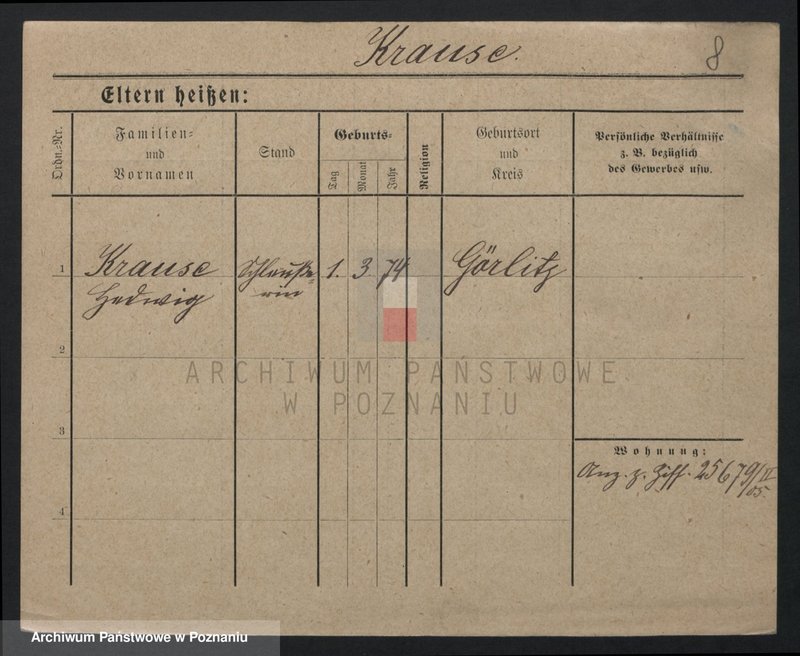 Krause.
8
Eltern heißen:
Ordn.-Nr.
Familien-
und
Vornamen
Stand
Geburts-
Tag
Monat
Jahr
Religion
Geburtsort
und
Kreis
Persönliche Verhältnisse
z. B. bezüglich
des Gewerbes usw.
1
Krause
Hedwig
1.
3
74
Görlitz
2
3
4
Wohnung:
Anz. z. Ziff. 25679/II
/05.
ARCHIWUM PAŃSTWOWE
W POZNANIU
Archiwum Państwowe w Poznaniu